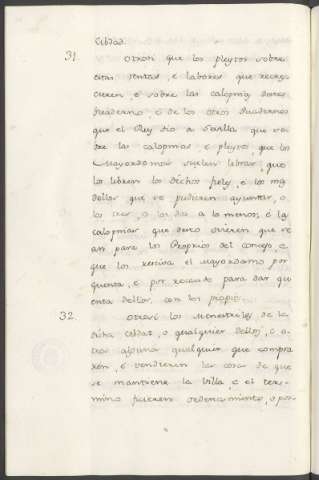 cibdad.
31 Otrosi que los pleytos sobre
estas rentas, e labores que recres-
cieren, e sobre las calopnias deste
Quaderno, e de los otros Quadernos
que el Rey dio a Sevilla que so-
bre las calopnias e pleytos que los
Mayordomos suelen librar, que
los libren los dichos fieles, e los mas
dellos que se pudieren ayuntar, o
los tres, o los dos a lo menos, e las
calopnias que dero ovieren que se-
an para los Proprios del concejo, e
que los reciba el Mayordomo por
quenta, e por recaudo para dar qu-
enta dellos, con los proprios
32 Otrosi los Menestrales de la
dicha cibdat, o qualquier dellos, o o-
tros algunos qualquier que compra-
ren, e vendieren las cosas de que
se mantiene la Villa, e el ter-
mino ficieren ordenamiento, o pos-